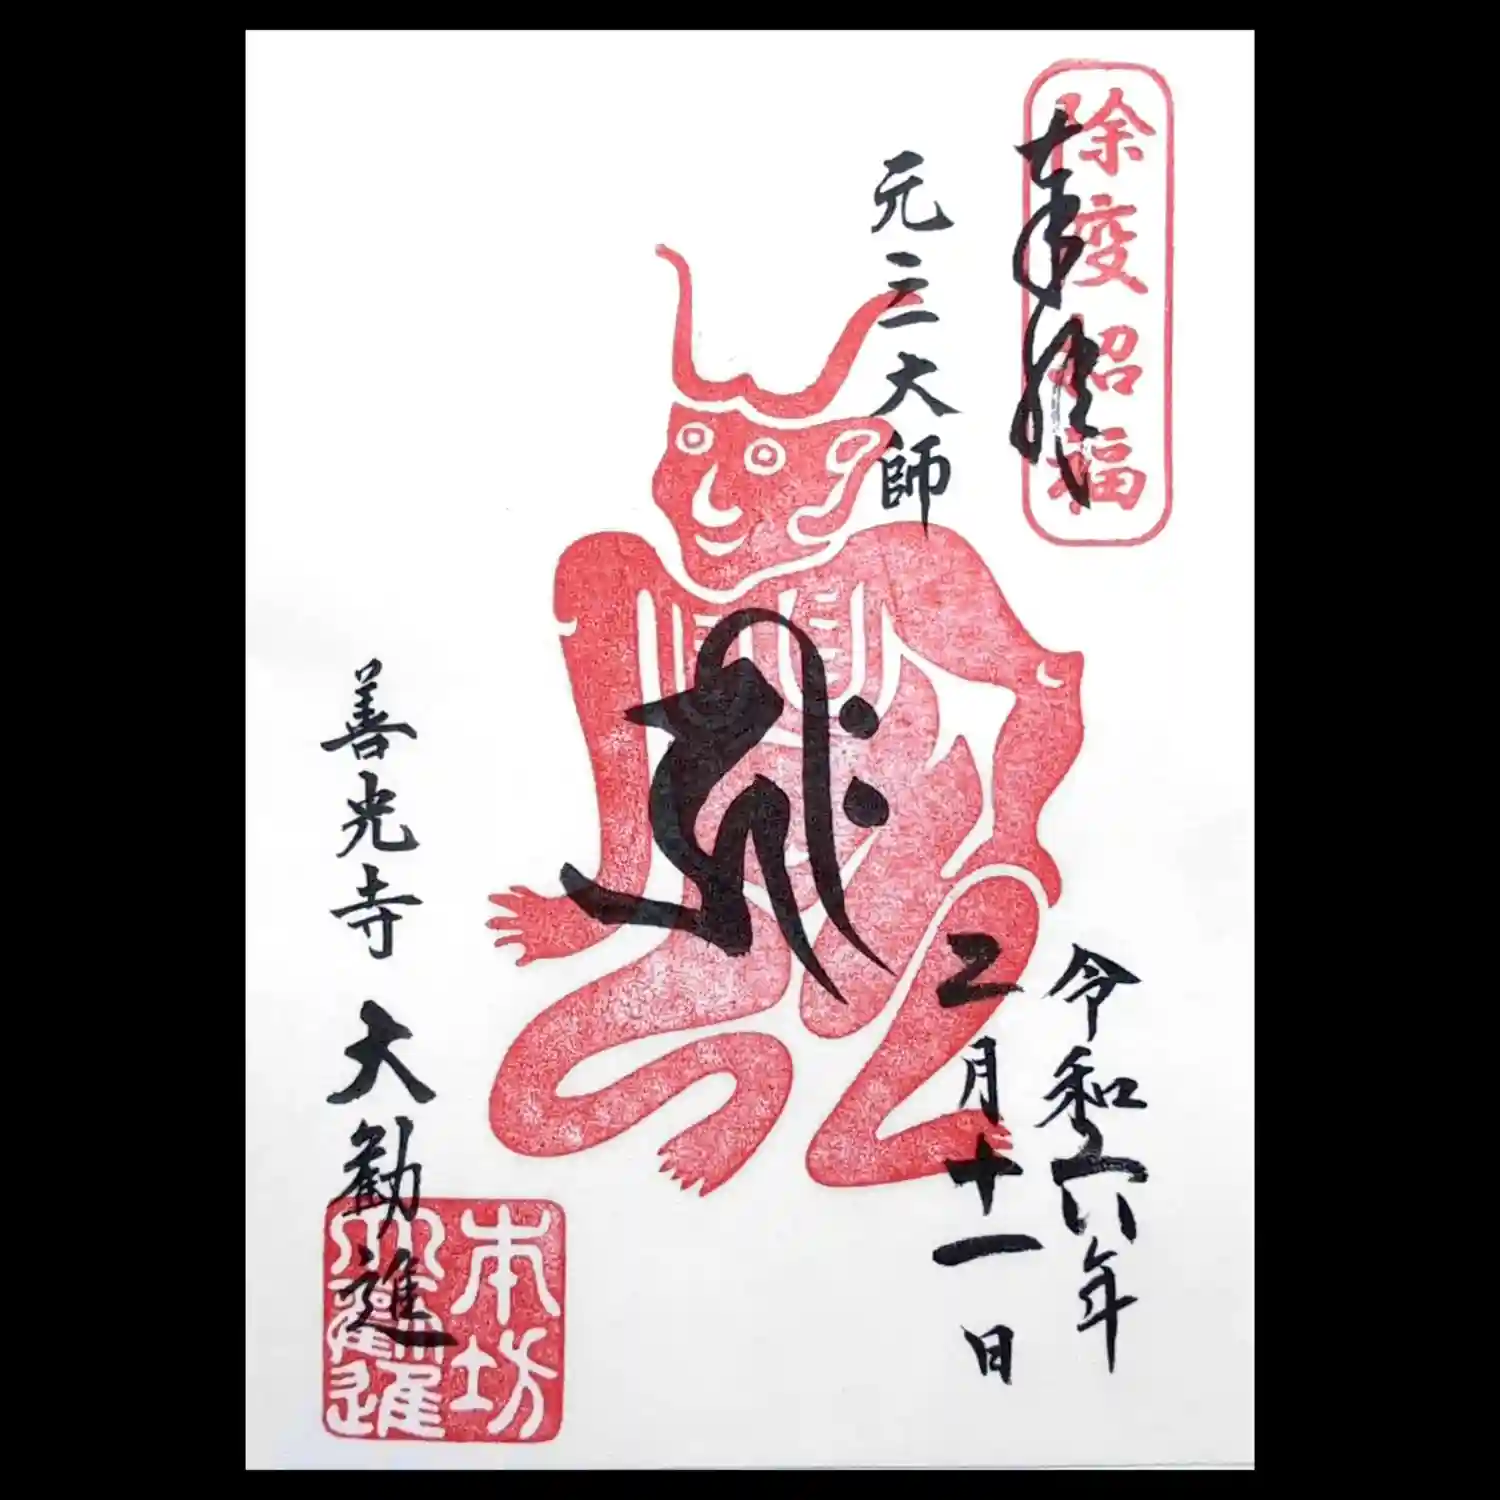 除疫招福
奉拝
元三大師
令和六年
二月十一日
善光寺 大勧進
本坊
大勧進